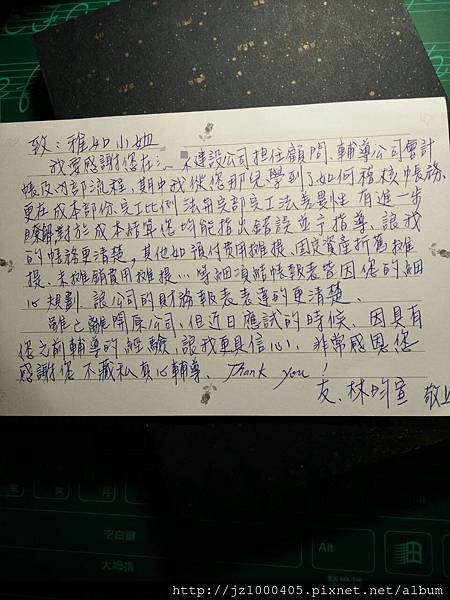 致:雅如小姐
我要感謝您在 建設公司擔任顧問、輔導公司會計
帳及內部流程,期中我從您那兒學到了如何稽核帳務,
更在成本部份完工比例法與完工法差異性有進一步
瞭解對於成本結算您均能指出錯誤並予指導、讓我
的帳務更清楚,其他如預付費用攤提、固定資產折舊攤
提、未攤銷費用攤提…等細項結帳報表皆因您的細
心規劃、讓公司的財務報表表達的更清楚、
雖已離開原公司、但近日應試的時候、因具有
您之前輔導的經驗、讓我更具信心、非常感恩您
感謝您不藏私真心輔導、Thank you!
友、林昀宣 敬上
空白鍵
大拇指
Alt
月
http://jz1000405.pixnet.net/album